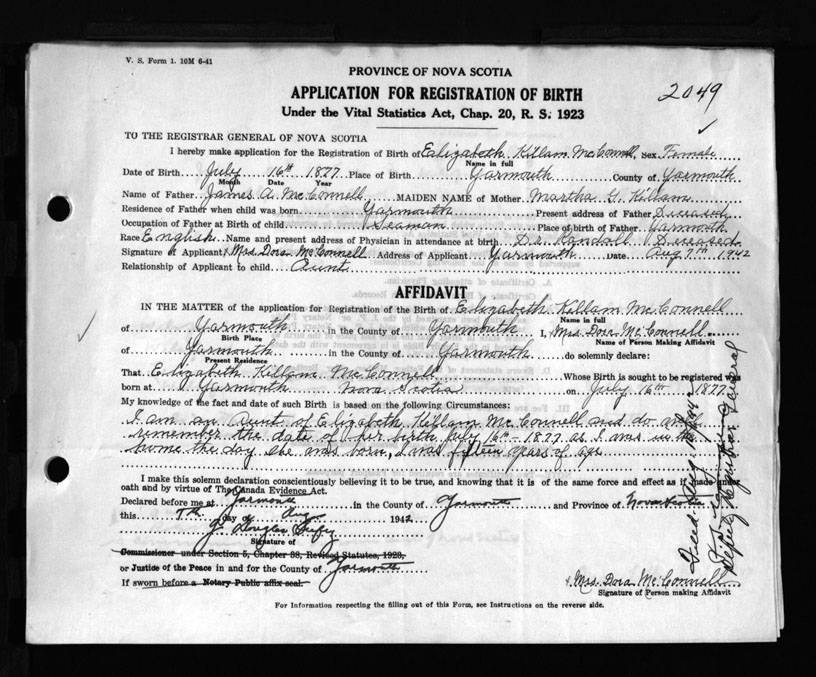 V. S. Form 1. 10M 6-41
PROVINCE OF NOVA SCOTIA
APPLICATION FOR REGISTRATION OF BIRTH
2049
Under the Vital Statistics Act, Chap. 20, R. S. 1923
TO THE REGISTRAR GENERAL OF NOVA SCOTIA
I hereby make application for the Registration of Birth of Ealizabeth Killam McConnell, Sex Female
Name in full
Date of Birth July 16th 1877 Place of Birth Yarmouth County of Yarmouth
Month Date Year
Name of Father James A. McConnell MAIDEN NAME of Mother Martha G. Killam
Residence of Father when child was born Yarmouth Present address of Father Deceased
Occupation of Father at Birth of child Seaman Place of birth of Father Yarmouth
Race English Name and present address of Physician in attendance at birth Dr. Randall Deceased
Signature of Applicant Mrs. Dora McConnell Address of Applicant Yarmouth Date Aug 7th 1942
Relationship of Applicant to child Aunt
AFFIDAVIT
IN THE MATTER of the application for Registration of the Birth of Elizabeth Killam McConnell
Name in full
of Yarmouth in the County of Yarmouth I, Mrs. Dora McConnell
Birth Place Name of Person Making Affidavit
of Yarmouth in the County of Yarmouth do solemnly declare:
Present Residence
That Elizabeth Killam McConnell Whose Birth is sought to be registered was
born at Yarmouth Nova Scotia on July 16th 1877
My knowledge of the fact and date of such Birth is based on the following Circumstances:
I am an Aunt of Elizabeth Killam McConnell and do well
remember the date of her birth July 16th - 1877 as I was in the
home the day she was born, I was fifteen years of age
I make this solemn declaration conscientiously believing it to be true, and knowing that it is of the same force and effect as if made under
oath and by virtue of The Canada Evidence Act.
Declared before me at Yarmouth in the County of Yarmouth and Province of Nova Scotia
this 7th day of Aug 1942
J. Douglas
Signature of
Commissioner under Section 5, Chapter 38, Revised Statutes, 1923,
or Justice of the Peace in and for the County of Yarmouth
If sworn before a Notary Public affix seal.
Mrs. Dora McConnell
Signature of Person making Affidavit
For Information respecting the filling out of this Form, see Instructions on the reverse side.
Deputy Registrar General